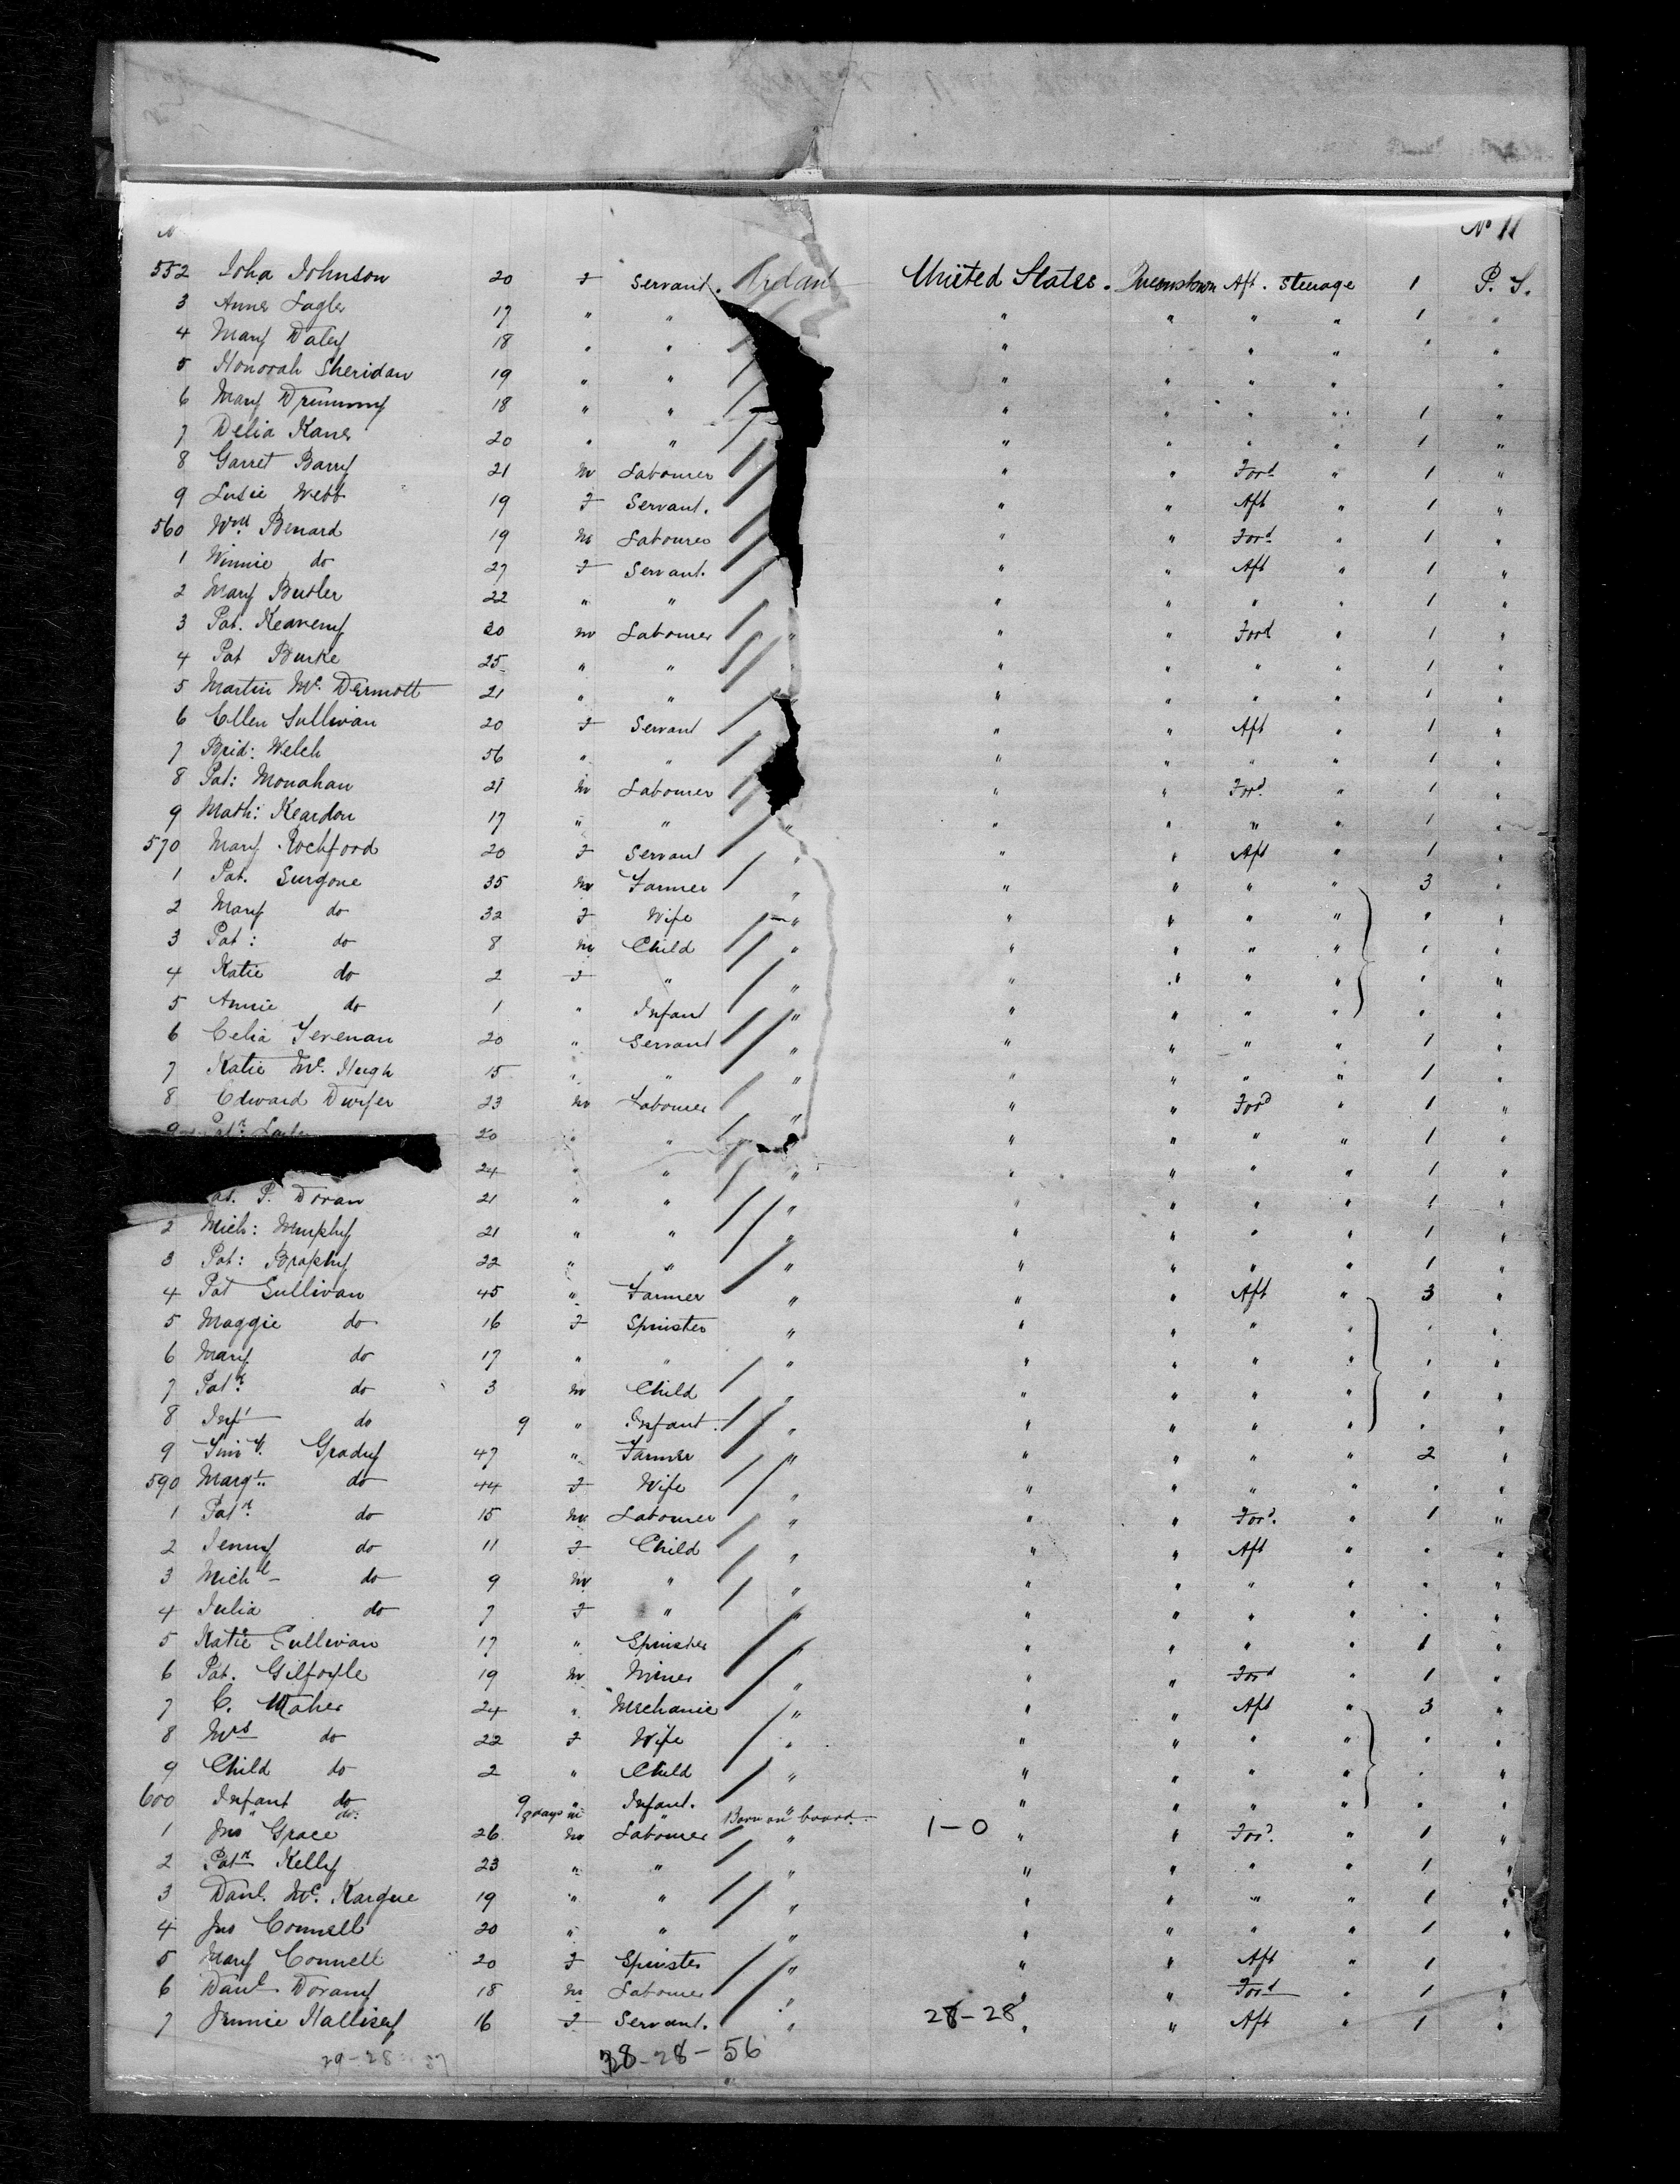 No 11
552 Joha Johnson 20 F Servant. Ireland United States. Queenstown Aft. Steerage 1 P. S.
3 Annie Lagler 17 " " " " " " 1 "
4 Mary Daley 18 " " " " " " "
5 Honorah Sheridan 19 " " " " " " "
6 Mary Drummy 18 " " " " " " 1 "
7 Delia Kane 20 " " " " " " 1 "
8 Garret Barry 21 m Labourer " " Ford " 1 "
9 Susie Webb 19 F Servant. " " Aft " 1 "
560 Wm Benard 19 m Labourer " " Ford " 1 "
1 Winnie do 27 F Servant. " " Aft " 1 "
2 Mary Butler 22 " " " " " " 1 "
3 Pat. Keaveny 20 m Labourer " " " Ford " 1 "
4 Pat Burke 25 " " " " " " " 1 "
5 Martin Mc. Dermott 21 " " " " " " 1 "
6 Ellen Sullivan 20 F Servant " " Aft " 1 "
7 Brid: Welch 56 " " " " " " 1 "
8 Pat: Monahan 21 m Labourer " " Ford " 1 "
9 Math: Reardon 17 " " " " " " " 1 "
570 Mary Rochford 20 F Servant " " " Aft " 1 "
1 Pat. Surgone 35 m Farmer " " " " " 3 "
2 Mary do 32 F Wife " " " " " " "
3 Pat: do 8 m Child " " " " " " "
4 Katie do 2 F " " " " " " " "
5 Annie do 1 " Infant " " " " " " "
6 Celia 20 " Servant " " " " " 1 "
7 Katie Mc. Hugh 15 " " " " " " " 1 "
8 Edward Dwyer 23 m Labourer " " " Ford " 1 "
9 Patk. 20 " " " " " " 1 "
24 " " " " " " " 1 "
at. P. Doran 21 " " " " " " " 1 "
2 Mich: Murphy 21 " " " " " " " 1 "
3 Pat: Brophy 22 " " " " " " " 1 "
4 Pat Sullivan 45 " Farmer " " " Aft " 3 "
5 Maggie do 16 F Spinster " " " " " " "
6 Mary do 17 " " " " " " " " "
7 Patk do 3 m Child " " " " " " "
8 Inft do 9 " Infant. " " " " " " "
9 Timy. Grady 47 " Farmer " " " " " 2 "
590 Margt. do 44 F Wife " " " " " " "
1 Patk do 15 m Labourer " " " Ford. " 1 "
2 Jenny do 11 F Child " " " Aft " " "
3 Michl do 9 m " " " " " " " "
4 Julia do 7 F " " " " " " " "
5 Katie Sullivan 17 " Spinster " " " " " 1 "
6 Pat. Gilfoyle 19 m Miner " " " Ford " 1 "
7 C. Maher 24 " Mechanic " " " Aft " 3 "
8 Mrs do 22 F Wife " " " " " " "
9 Child do 2 " Child " " " " " " "
600 Infant do 9 " Infant. " " " " " " "
" do. 8 days m " Born on board. 1-0
1 Jno Grace 26 m Labourer " " " Ford. " 1 "
2 Patk Kelly 23 " " " " " " " 1 "
3 Danl. Mc. Kargue 19 " " " " " " " 1 "
4 Jno Connell 20 " " " " " " " 1 "
5 Mary Connell 20 F Spinster " " " Aft " 1
6 Danl Dorany 18 m Labourer " " " Ford " 1 "
7 Jennie Hallisey 16 F Servant. " 28-28 " " Aft " 1 "
29-28 57 28-28-56